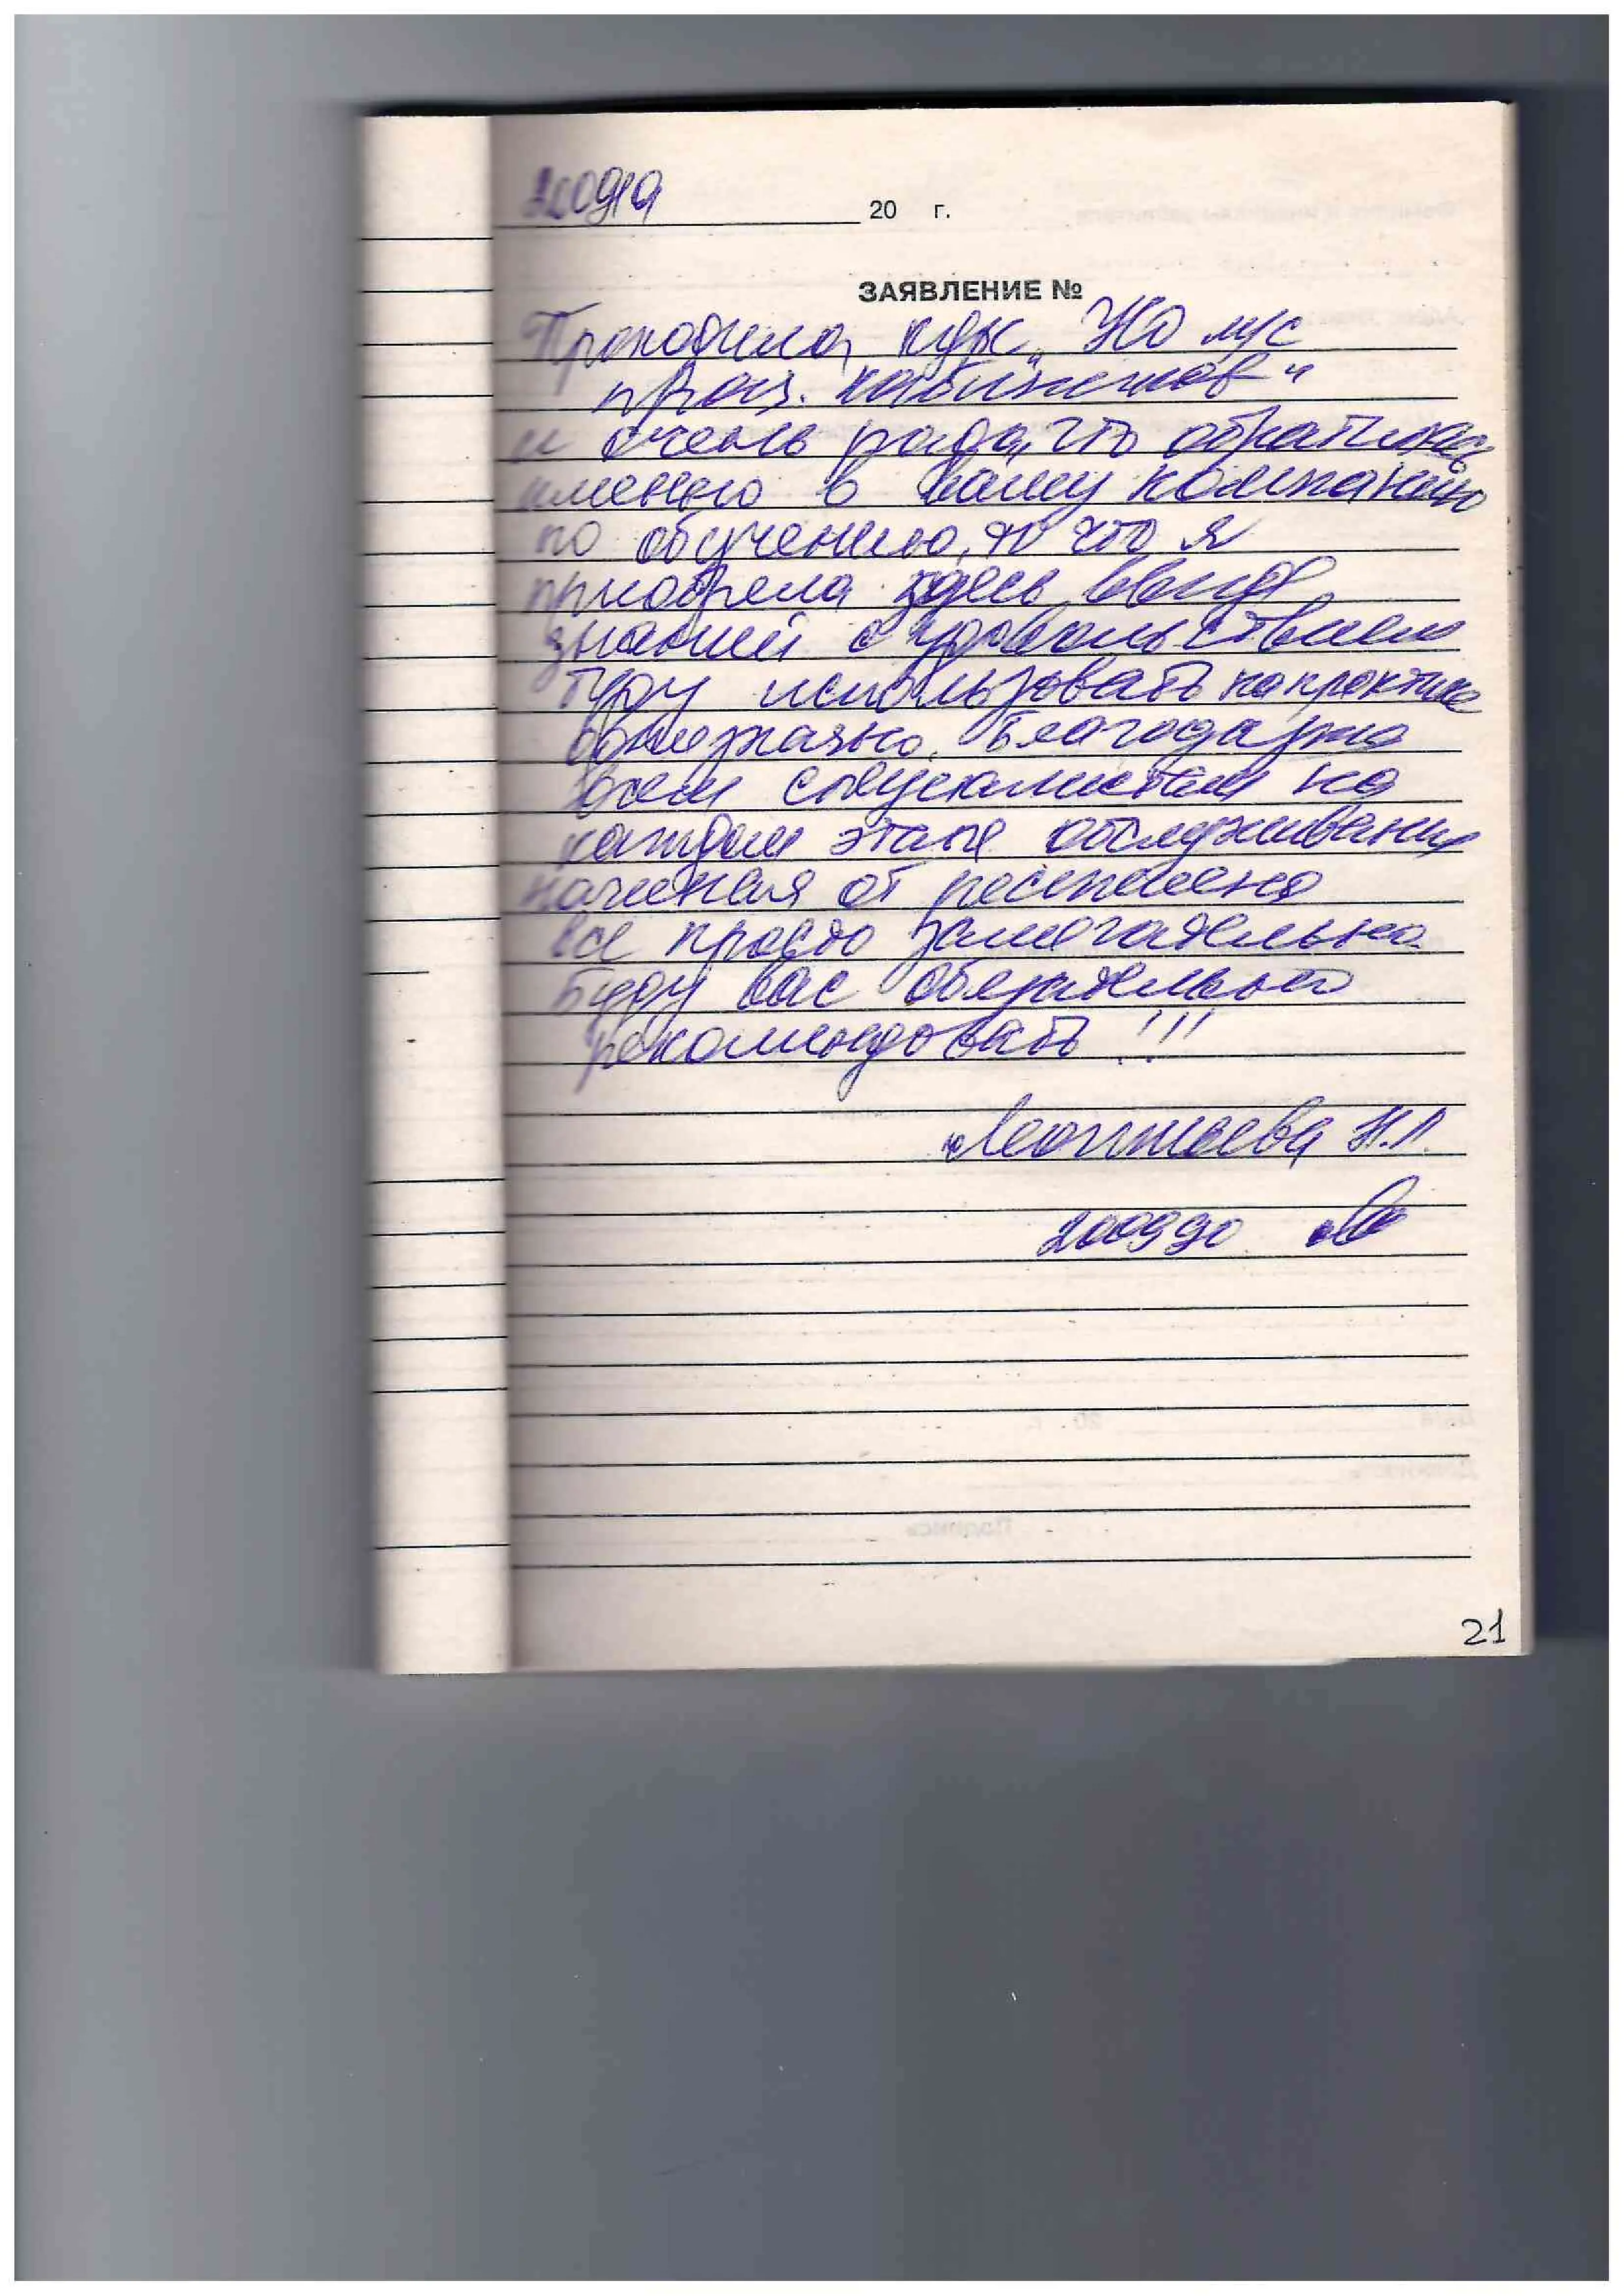 20 г.
ЗАЯВЛЕНИЕ №
Проходила курс „УЮ м/с
проц. кабинетов"
и очень рада, что обратилась
именно в вашу компанию
по обучению, то что я
приобрела здесь ввиде
знаний с удовольствием
буду использовать на практике
Благодарна
всем специалистам на
каждом этапе обслуживания
начиная от ресепшена
все просто замечательно.
Буду вас обязательно
рекомендовать!!!
Леонтьева Н.Л.
21